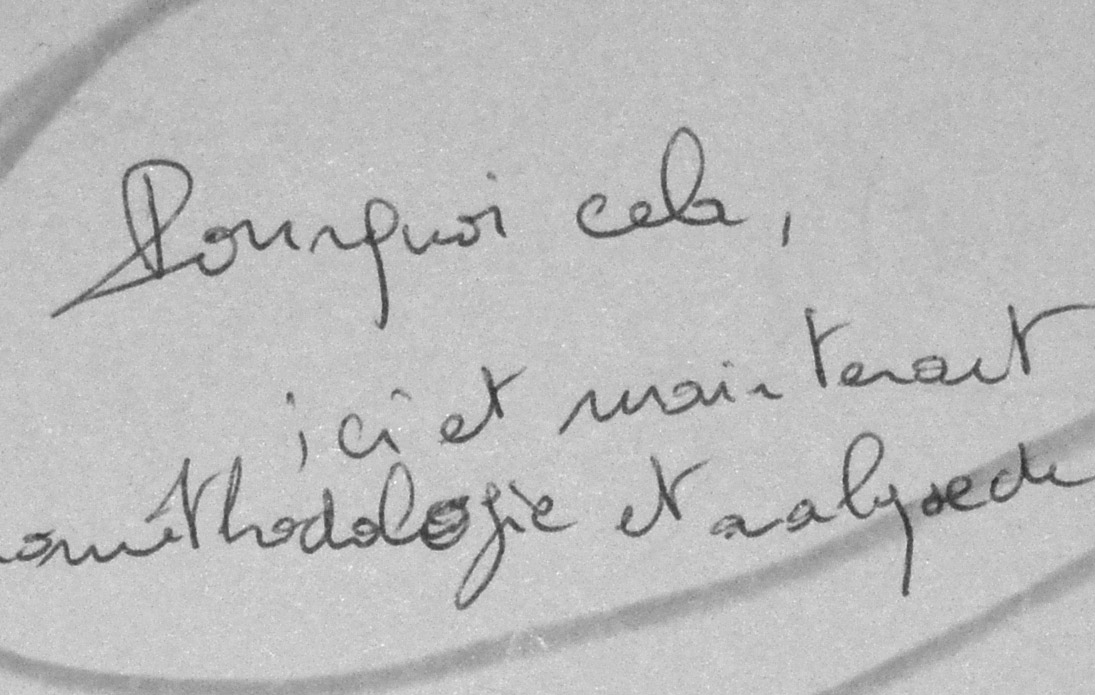 Pourquoi cela,
ici et maintenant
méthodologie et analyse de